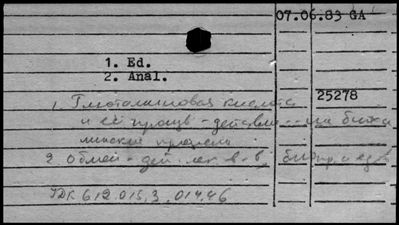 07.06.83 GA
1. Ed.
2. Anal.
25278
1. Глютаминовая кислота
и её произв. - действие - на биохи
мические процессы
2. Обмен - дей. лек. в-в,
УДК 612.015.3.014.46